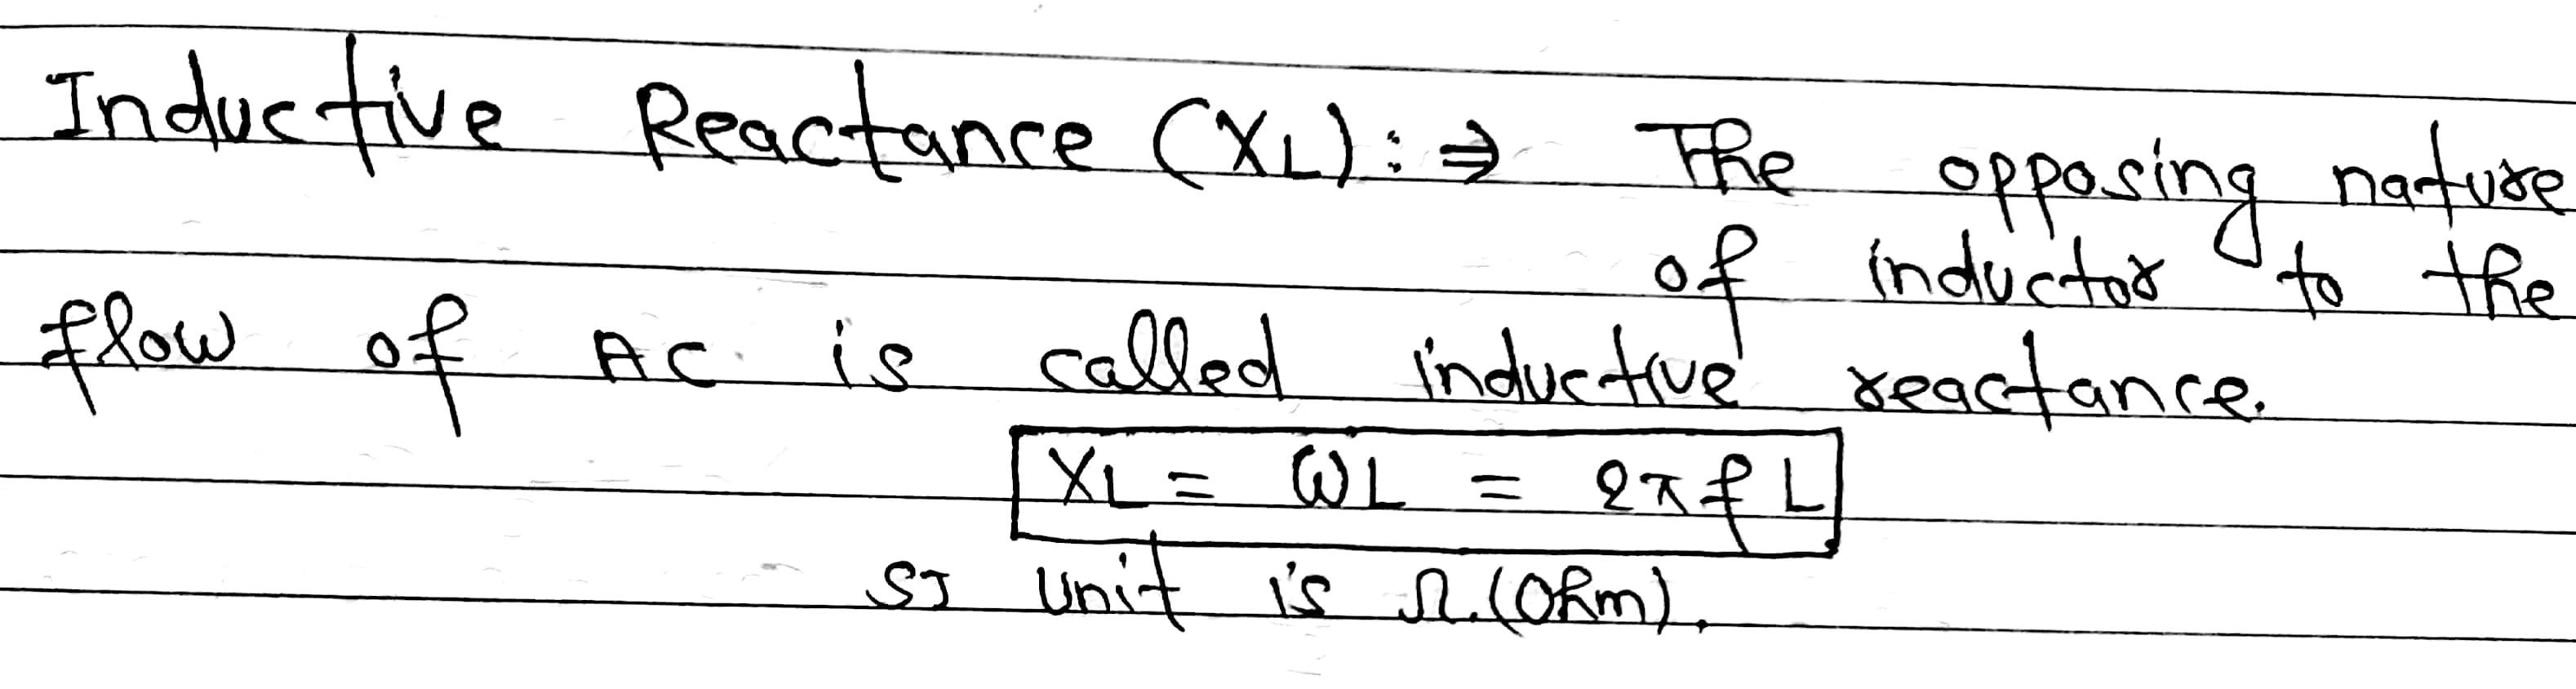 Inductive Reactance (XL):⇒ The opposing nature
of inductor to the
flow of AC is called inductive reactance.
XL = ωL = 2πfL
SI unit is Ω.(Ohm).